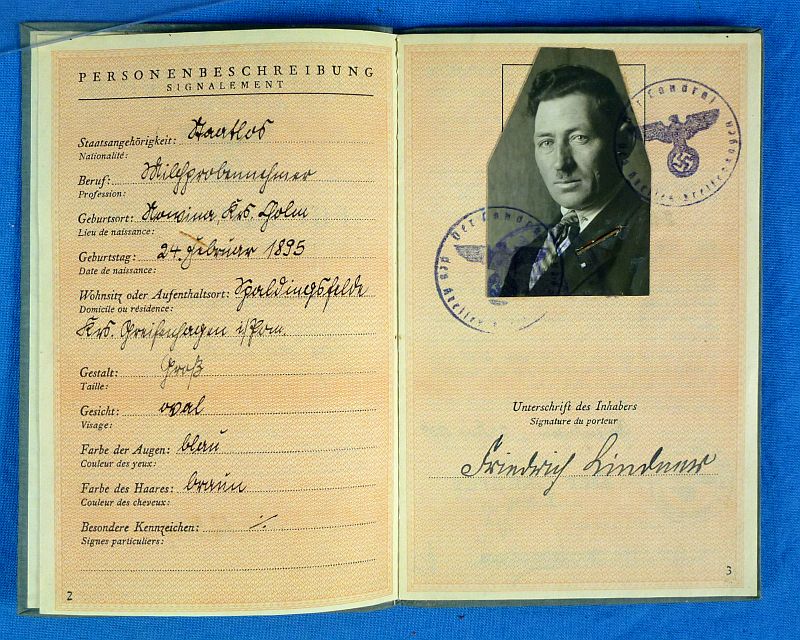 PERSONENBESCHREIBUNG
SIGNALEMENT
Staatsangehörigkeit: Staatlos
Nationalité:
Beruf: Milchprobennehmer
Profession:
Geburtsort: Nowina, Krs. Cholm
Lieu de naissance:
Geburtstag: 24. Februar 1895
Date de naissance:
Wohnsitz oder Aufenthaltsort: Spaldingsfelde
Domicile ou résidence:
Krs. Greifenhagen i/Pom.
Gestalt: Groß
Taille:
Gesicht: oval
Visage:
Farbe der Augen: blau
Couleur des yeux:
Farbe des Haares: braun
Couleur des cheveux:
Besondere Kennzeichen: ./.
Signes particuliers:
2
Der Landrat
Der Landrat
Unterschrift des Inhabers
Signature du porteur
Friedrich Lindner
3